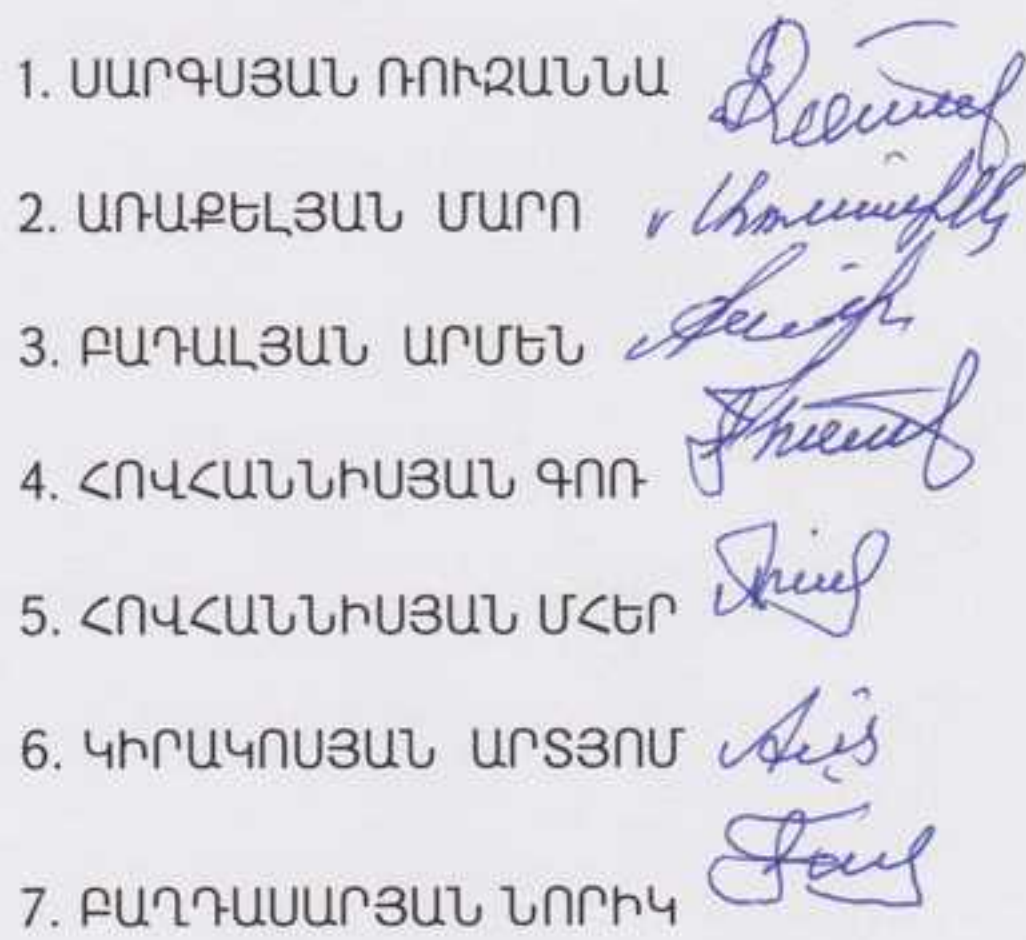 1. ՍԱՐԳՍՅԱՆ ՌՈՒԶԱՆՆԱ
2. ԱՌԱՔԵԼՅԱՆ ՄԱՐՈ
3. ԲԱԴԱԼՅԱՆ ԱՐՄԵՆ
4. ՀՈՎՀԱՆՆԻՍՅԱՆ ԳՈՌ
5. ՀՈՎՀԱՆՆԻՍՅԱՆ ՄՀԵՐ
6. ԿԻՐԱԿՈՍՅԱՆ ԱՐՏՅՈՄ
7. ԲԱՂԴԱՍԱՐՅԱՆ ՆՈՐԻԿ